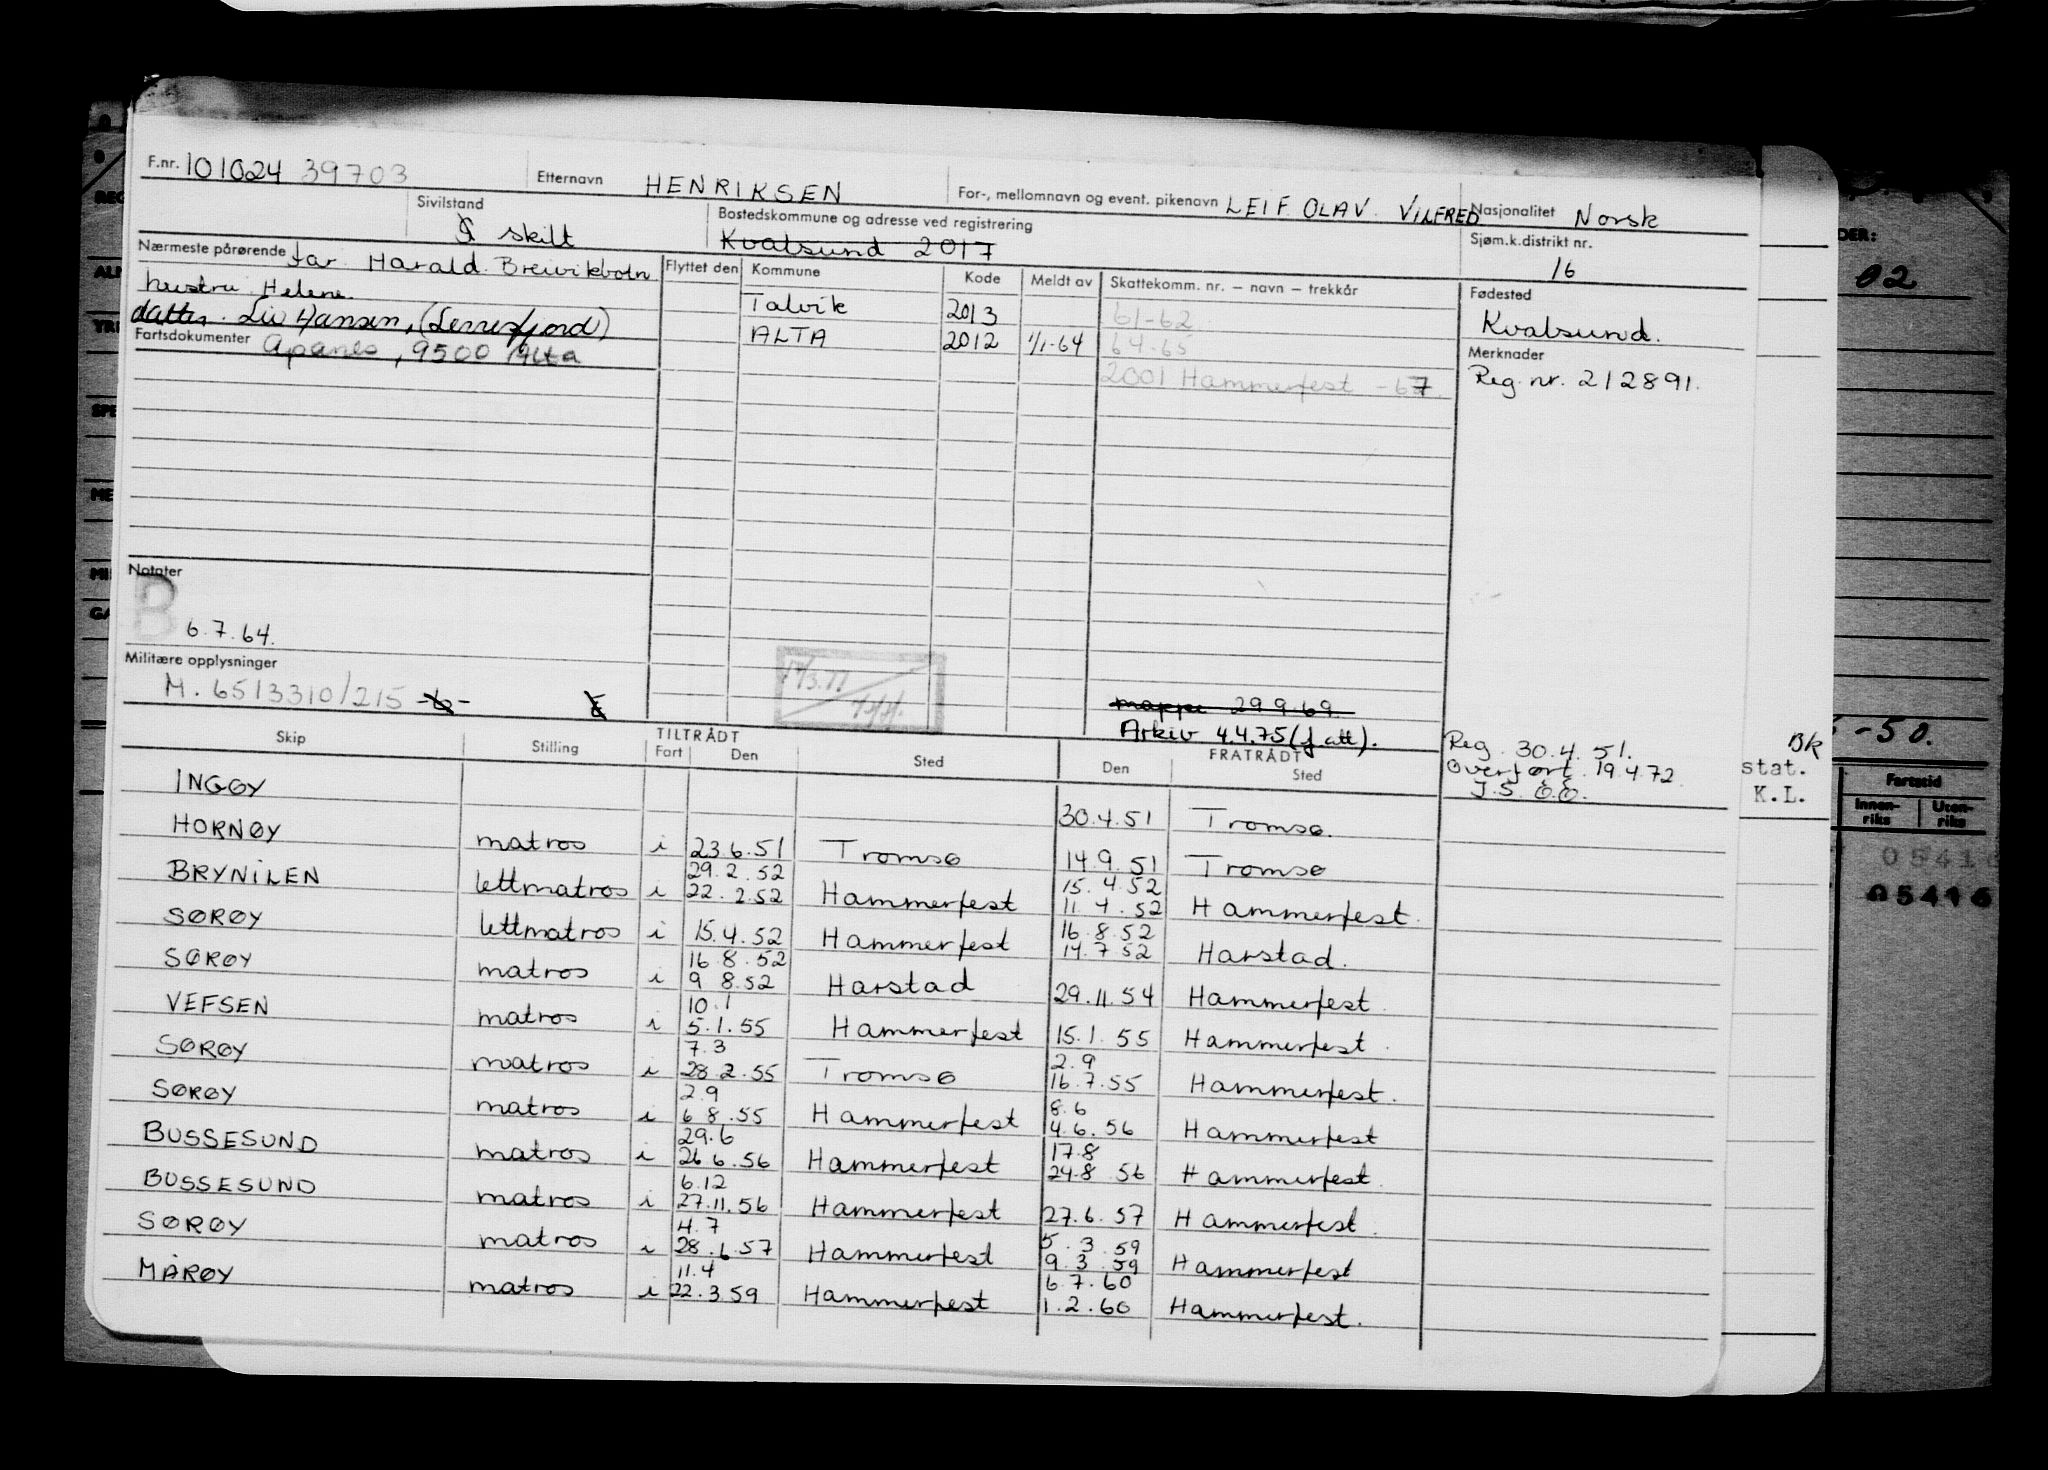 F.nr. 101024 39703 Etternavn HENRIKSEN For-, mellomnavn og event. pikenavn LEIF OLAV VILFRED Nasjonalitet Norsk
Sivilstand skilt Bostedskommune og adresse ved registrering Kvalsund 2017 Sjøm.k.distrikt nr. 16
Nærmeste pårørende far Harald Breivikbotn Flyttet den Kommune Kode Meldt av Skattekomm. nr. – navn – trekkår Fødested
hustru Helene Talvik 2013 61-62 Kvalsund.
datter. Liv Hansen, (Lerresfjord) ALTA 2012 1/1-64 64-65 Merknader
Fartsdokumenter Apanes, 9500 Alta 2001 Hammerfest -67 Reg. nr. 212891.
Notater
B
6.7.64.
Militære opplysninger
M. 6513310/215 -b-
mappe 29.9.69.
Arkiv 4.4.75 (f att).
Reg. 30.4.51.
Overført. 19.4.72.
J.S. Ö.Ö.
Skip Stilling TILTRÅDT Fart Den Sted FRATRÅDT Den Sted
INGØY 30.4.51 Tromsø.
HORNØY matros i 23.6.51 Tromsø 14.9.51 Tromsø
29.2.52 15.4.52
BRYNILEN lettmatros i 22.2.52 Hammerfest 11.4.52 Hammerfest.
16.8.52
SØRØY lettmatros i 15.4.52 Hammerfest 14.7.52 Harstad.
16.8.52
SØRØY matros i 9.8.52 Harstad 29.11.54 Hammerfest
10.1
VEFSEN matros i 5.1.55 Hammerfest 15.1.55 Hammerfest.
7.3 2.9
SØRØY matros i 28.2.55 Tromsø 16.7.55 Hammerfest.
2.9 8.6
SØRØY matros i 6.8.55 Hammerfest 4.6.56 Hammerfest
29.6 17.8
BUSSESUND matros i 26.6.56 Hammerfest 24.8.56 Hammerfest.
6.12
BUSSESUND matros i 27.11.56 Hammerfest 27.6.57 Hammerfest.
4.7 5.3.59
SØRØY matros i 28.6.57 Hammerfest 9.3.59 Hammerfest
11.4 6.7.60
MÅRØY matros i 22.3.59 Hammerfest 1.2.60 Hammerfest.
Bk
stat.
K.L.
DER:
02
-50.
Fartstid
Innen-riks Uten-riks
05416
05416